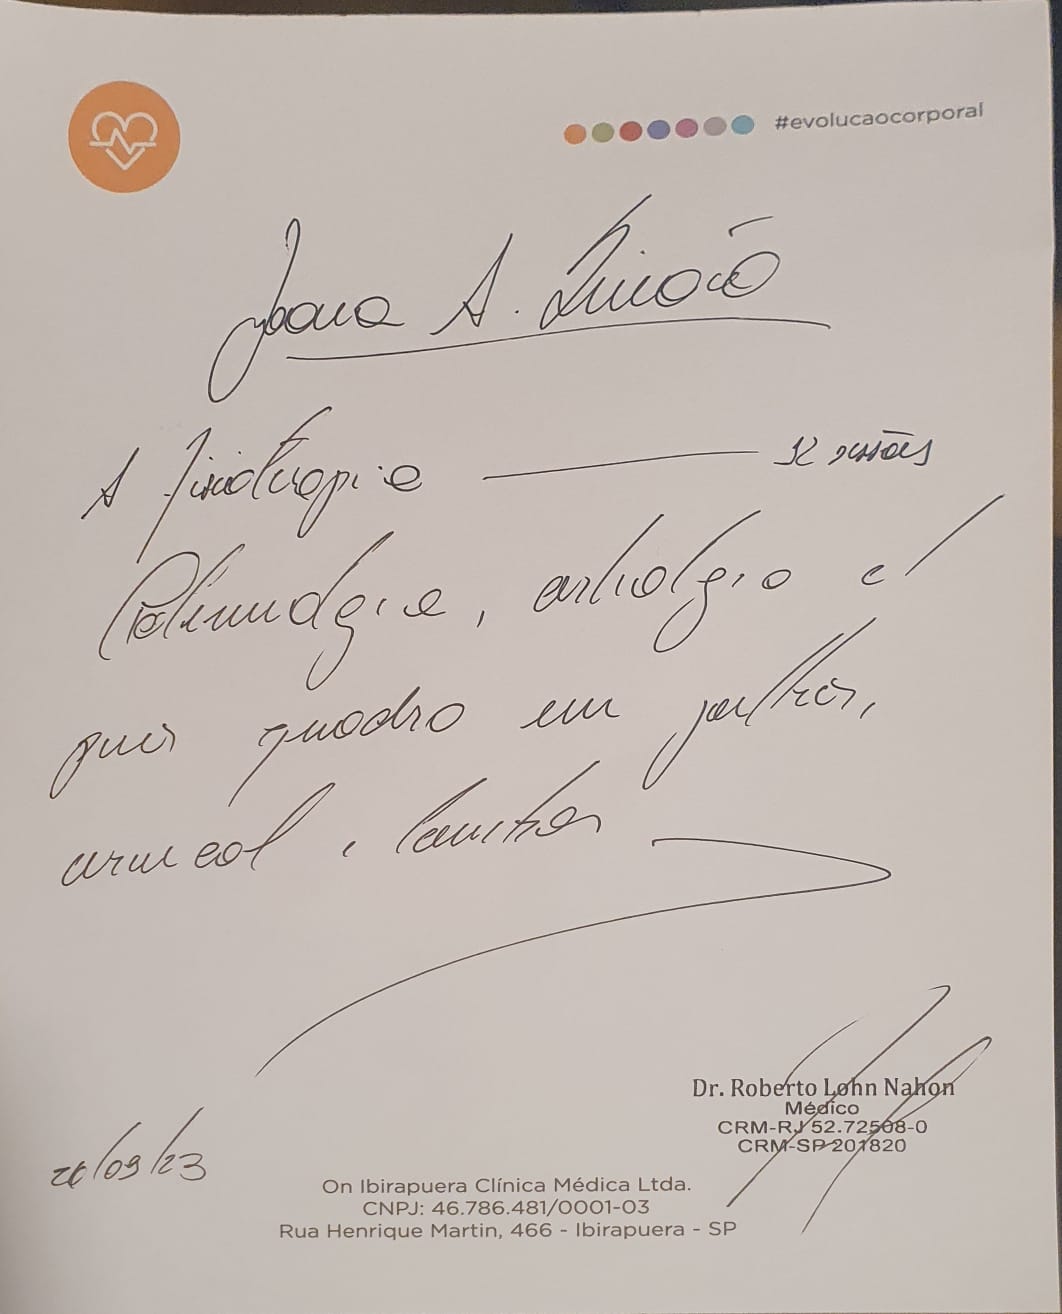 #evolucaocorporal
Joana A. Simão
A fisioterapia 12 sessões
Polimialgia, artralgia c/
quadro em joelhos,
e
26/09/23
Dr. Roberto Lohn Nahon
Médico
CRM-RJ 52.72508-0
CRM-SP 201820
On Ibirapuera Clínica Médica Ltda.
CNPJ: 46.786.481/0001-03
Rua Henrique Martin, 466 - Ibirapuera - SP